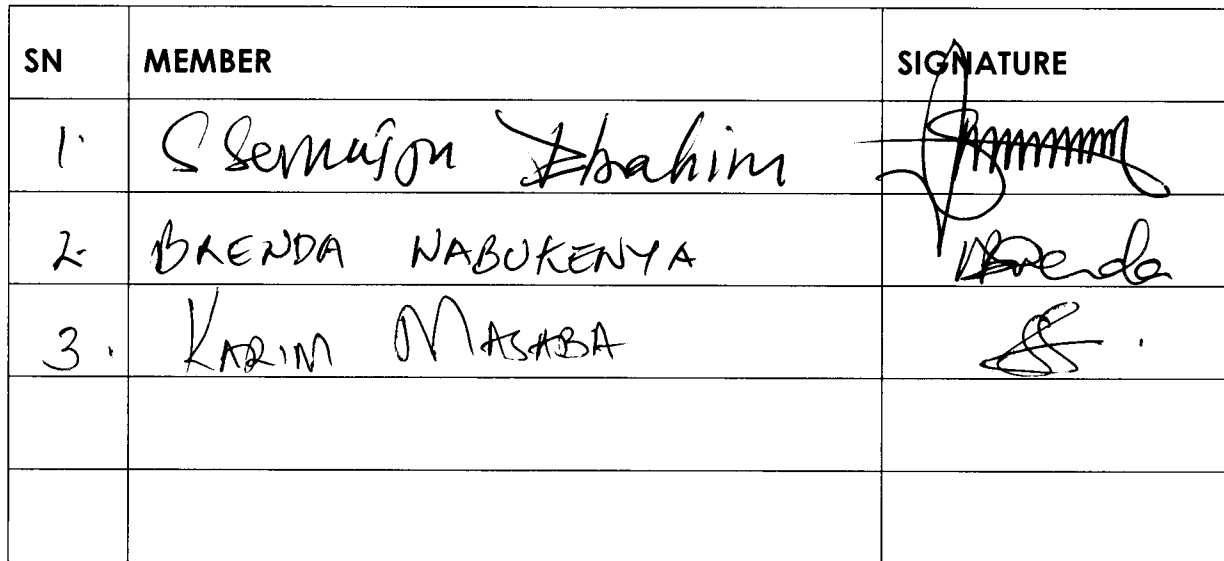 SN MEMBER SIGNATURE
1. Ssemujju Ibrahim
2. BRENDA NABUKENYA Brenda
3. KARIM MASABA